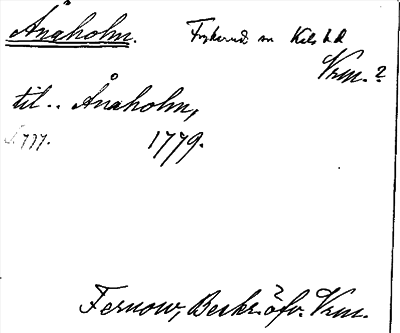 Ånäholm. Frykerud sn Kils hd
Vrm. ?
til.. Ånäholm,
1777. 1779.
Fernow, Beskr. öfv. Vrm.